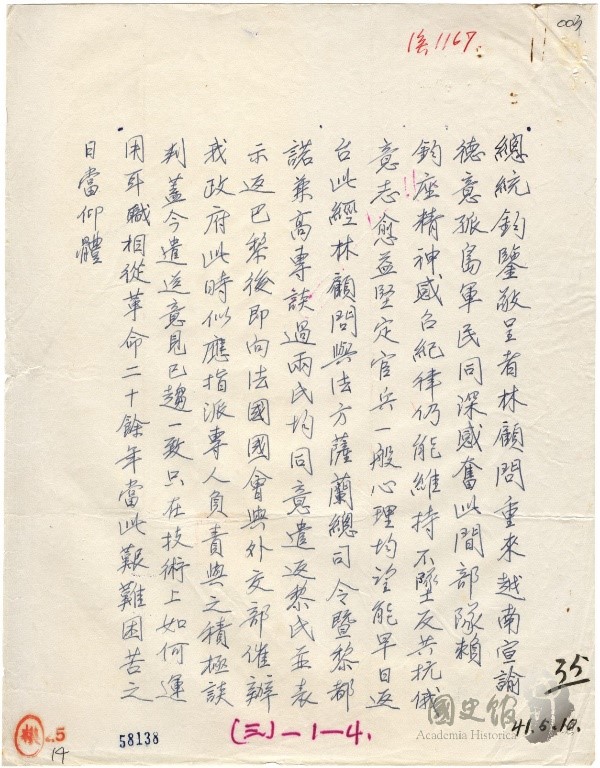 003
1167.
總統鈞鑒敬呈者林顧問重來越南宣諭
德意孤島軍民同深感奮此間部隊賴
鈞座精神感召紀律仍能維持不墜反共抗俄
意志愈益堅定官兵一般心理均望能早日返
台此經林顧問與法方薩蘭總司令暨黎都
諾兼高專談過兩氏均同意遣返黎氏並表
示返巴黎後即向法國國會與外交部催辦
我政府此時似應指派專人負責與之積極談
判蓋今遣送意見已趨一致只在技術上如何運
用耳職相從革命二十餘年當此艱難困苦之
日當仰體
35
41.5.10.
國史館
Academia Historica
.5
14
58138
(三)-1-4.